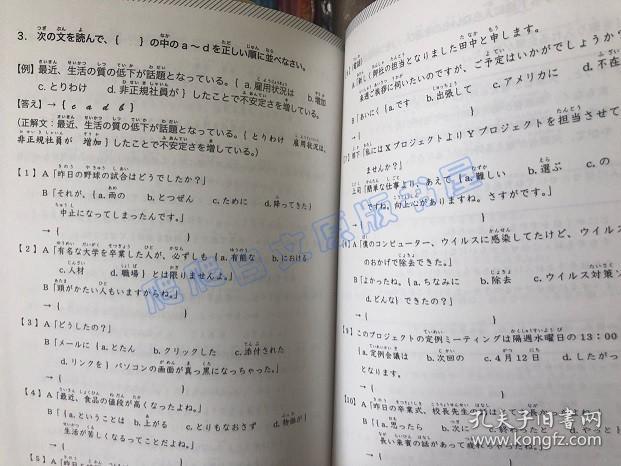 3. 次の文を読んで、{　}の中のa～dを正しい順に並べなさい。
【例】最近、生活の質の低下が話題となっている。{a.雇用状況は　b.増加
c.とりわけ　d.非正規社員が}したことで不安定さを増している。)
【答え】→{ c a d b }
(正解文:最近、生活の質の低下が話題となっている。とりわけ　雇用状況は、
非正規社員が　増加したことで不安定さを増している。)
【1】A「昨日の野球の試合はどうでしたか?」
B「それが、{a.雨の　b.とつぜん　c.ために　d.降ってきた}
中止になってしまったんです。」
→{　}
【2】A「有名な大学を卒業した人が、必ずしも{a.有能な　b.における
c.人材　d.職場}とは限りませんよ。」
B「頭がかたい人もいますからね。」
→{　}
【3】A「どうしたの?」
B「メールに{a.とたん　b.クリックした　c.添付された
d.リンクを}パソコンの画面が真っ黒になっちゃった。」
→{　}
【4】A「最近、食品の値段が高くなったよね。」
B「{a.ということは　b.上がる　c.とりもなおさず　d.物価が}
生活が苦しくなるってことだよね。」
→{　}
【5】A「
御社の担当となりました田中と申します。
来週ご挨拶に伺いたいのですが、ご予定はいかがでしょうか?
b.出張して　c.アメリカに　d.不在
→{　}
部下「私にはXプロジェクトよりYプロジェクトを担当させて
ませんか?」
上司「簡単な仕事より、あえて{a.難しい　b.選ぶ　c.の
ですね。向上心がありますね。さすがです。」
→{　}
A「僕のコンピューター、ウイルスに感染してたけど、ウイルス
のおかげで除去できた。」
B「よかったね。{a.ちなみに　b.除去　c.ウイルス対策ソ
d.どんな}できたの?」
→{　}
【9】このプロジェクトの定例ミーティングは隔週水曜日の13:00
{a.定例会議は　b.次回の　c.4月12日　d.したがっ
となります。
→{　}
【10】A「昨日の卒業式、校長先生の
B「{a.思ったら　b.に　c.　d.やっと
長い来賓の話があって疲れちゃったよね。」
→{　}
爬爬日文原版书屋
孔夫子旧书网
www.kongfz.com